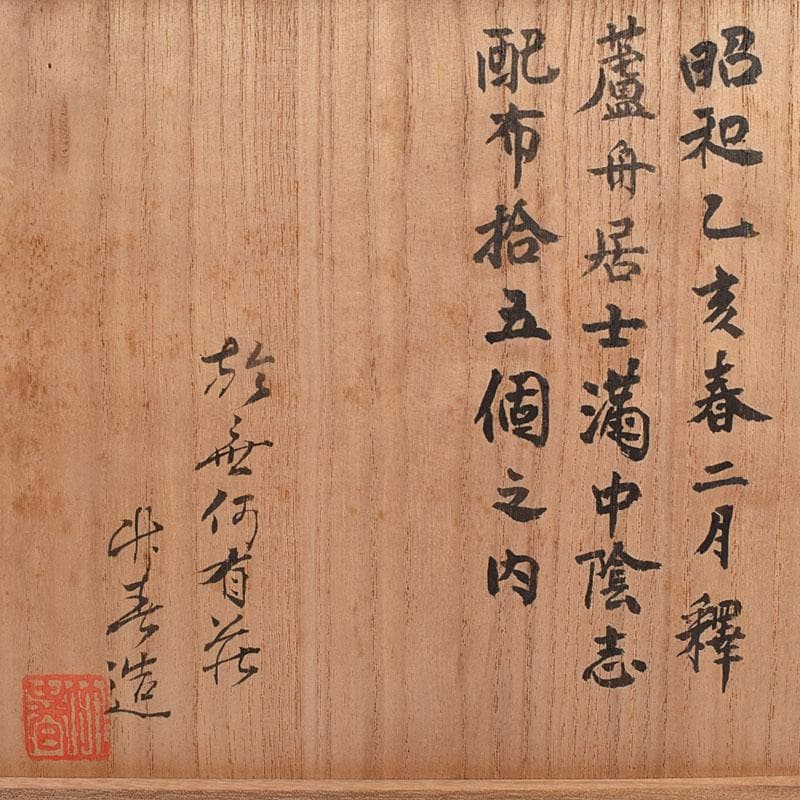 昭和乙亥春二月釋
蘆舟居士滿中陰志
配布拾五個之内
於無何有荘
竹春造